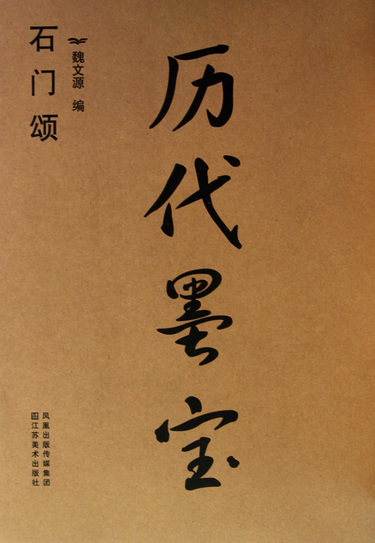 历代墨宝
魏文源 编
石门颂
凤凰出版传媒集团
江苏美术出版社